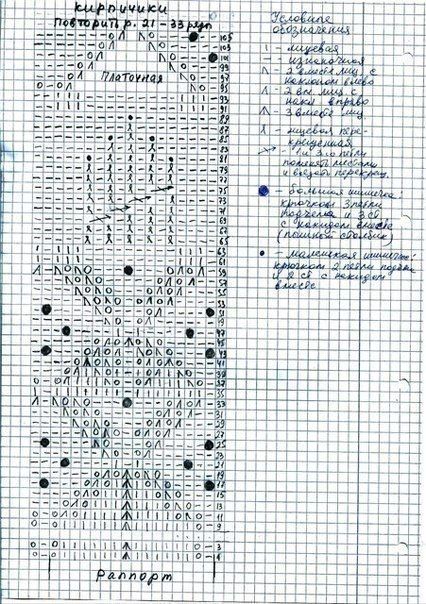 кирпичики
повторить р. 21 - 33 ряд
Платочная
105
103
101
99
97
95
93
91
89
87
85
83
81
79
77
75
73
71
69
67
65
63
61
59
57
55
53
51
49
47
45
43
41
39
37
35
33
31
29
27
25
23
21
19
17
15
13
11
9
3
1
Раппорт
Условные
обозначения
| - лицевая
- - изнаночная
2 вместе лиц. с
наклоном влево
2 вм. лиц. с
накл вправо
3 вместе лиц.
лицевая пере-
крещенная
1 и 3 петли
поменять местами
и вязать перекрещ.
- большая шишечка
крючком 3 петли
подъема и 3 ст
с накидом вместе
(пышный столбик)
- маленькая шишечка:
крючком 2 петли подъема
и 2 ст с накидом
вместе